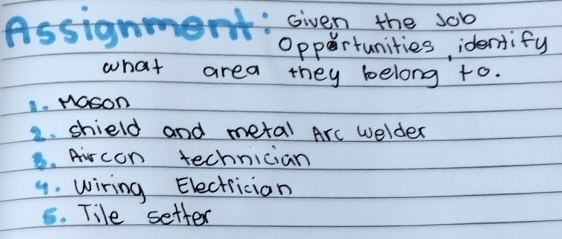 Assignment: Given the Job
Opportunities, identify
what area they belong to.
1. Mason
2. shield and metal Arc welder
3. Aircon technician
4. Wiring Electrician
5. Tile setter